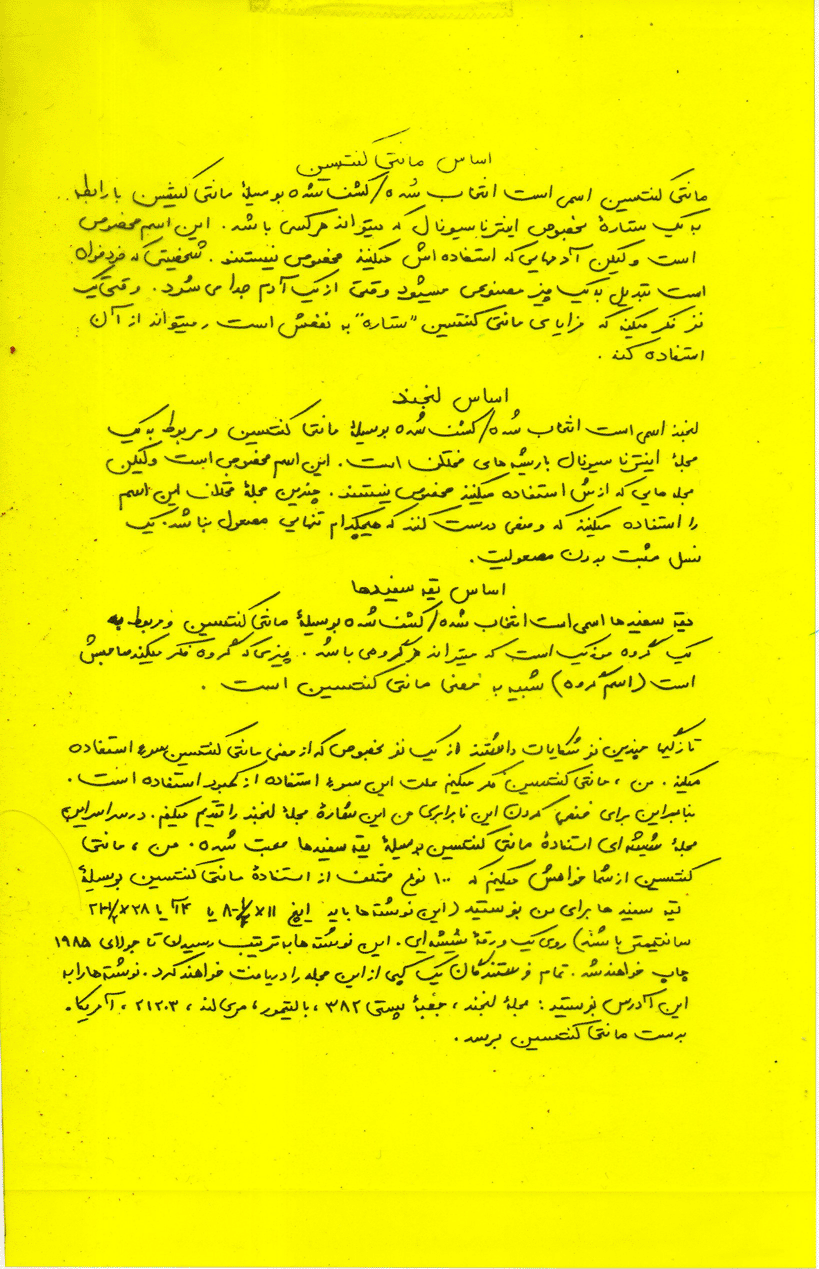 اساس مانتی کنتسین
مانتی کنتسین اسمی است انتخاب شده/کشف شده بوسیلهٔ مانتی کنتسین با رابطه
به یک ستارهٔ مخصوص اینترناسیونال که میتواند هر کسی باشد. این اسم مخصوص
است ولیکن آدمهایی که استفاده اش میکنند مخصوص نیستند. شخصیتی که
است تبدیل به یک چیز مصنوعی میشود وقتی از یک آدم جدا می شود. وقتی یک
نفر فکر میکند که مزایای مانتی کنتسین "ستاره" به نفعش است میتواند از آن
استفاده کند.
اساس لنجبند
لنجبند اسمی است انتخاب شده/کشف شده بوسیلهٔ مانتی کنتسین و مربوط به یک
مجلهٔ اینترناسیونال با ریشه های مختلف است. این اسم مخصوص است ولیکن
مجله هایی که ازش استفاده میکنند مخصوص نیستند. چندین مجلهٔ مختلف این اسم
را استفاده میکنند که وضعی درست کنند که هیچکدام تنهایی مسعول نباشد. یک
نسل مثبت بدون مسعولیت.
اساس یقه سفیدها
یقه سفیدها اسمی است انتخاب شده/کشف شده بوسیلهٔ مانتی کنتسین و مربوط به
یک گروه موزیک است که میتواند هر گروهی باشد. چیزی که گروه فکر میکند صاحبش
است (اسم گروه) شبیه به معنی مانتی کنتسین است.
تازگیها چندین نفر شکایات داشتند از یک نفر مخصوص که از معنی مانتی کنتسین سوء استفاده
میکند. من، مانتی کنتسین فکر میکنم علت این سوء استفاده از کمبود استفاده است.
بنابراین برای کردن این نابرابری من این شمارهٔ مجلهٔ لنجبند را تقدیم میکنم. در سراسر این
مجلهٔ شیشه ای استفادهٔ مانتی کنتسین بوسیلهٔ یقه سفیدها شده. من، مانتی
کنتسین از شما خواهش میکنم که ۱۰۰ نوع مختلف از استفادهٔ مانتی کنتسین بوسیلهٔ
یقه سفیدها برای من بفرستید (این نوشته ها باید اینچ ۱۱ x ۸-۱/۲ یا ۲۸ x ۲۱-۱/۲
سانتیمتر باشند) روی یک ورقهٔ شیشه ای. این نوشته ها به ترتیب رسیدن تا جولای ۱۹۸۵
چاپ خواهند شد. تمام فرستندگان یک کپی از این مجله را دریافت خواهند کرد. نوشته ها را به
این آدرس بفرستید: مجلهٔ لنجبند، جعبهٔ پستی ۳۸۲، بالتیمور، مری لند، ۲۱۲۰۳، آمریکا.
بدست مانتی کنتسین برسد.